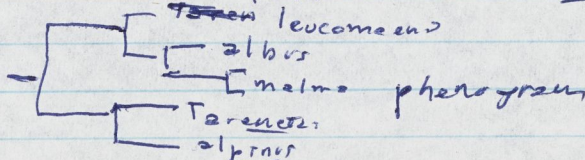 leucomaenis
albus
malma phenogram
Taranetzi
alpinus